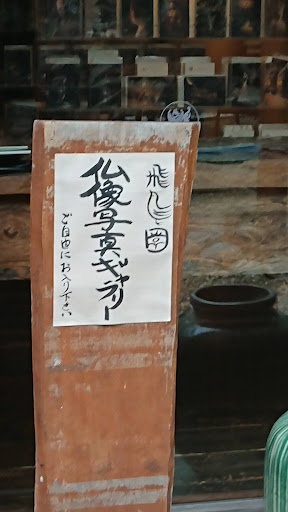 飛鳥園
仏像写真ギャラリー
ご自由にお入り下さい